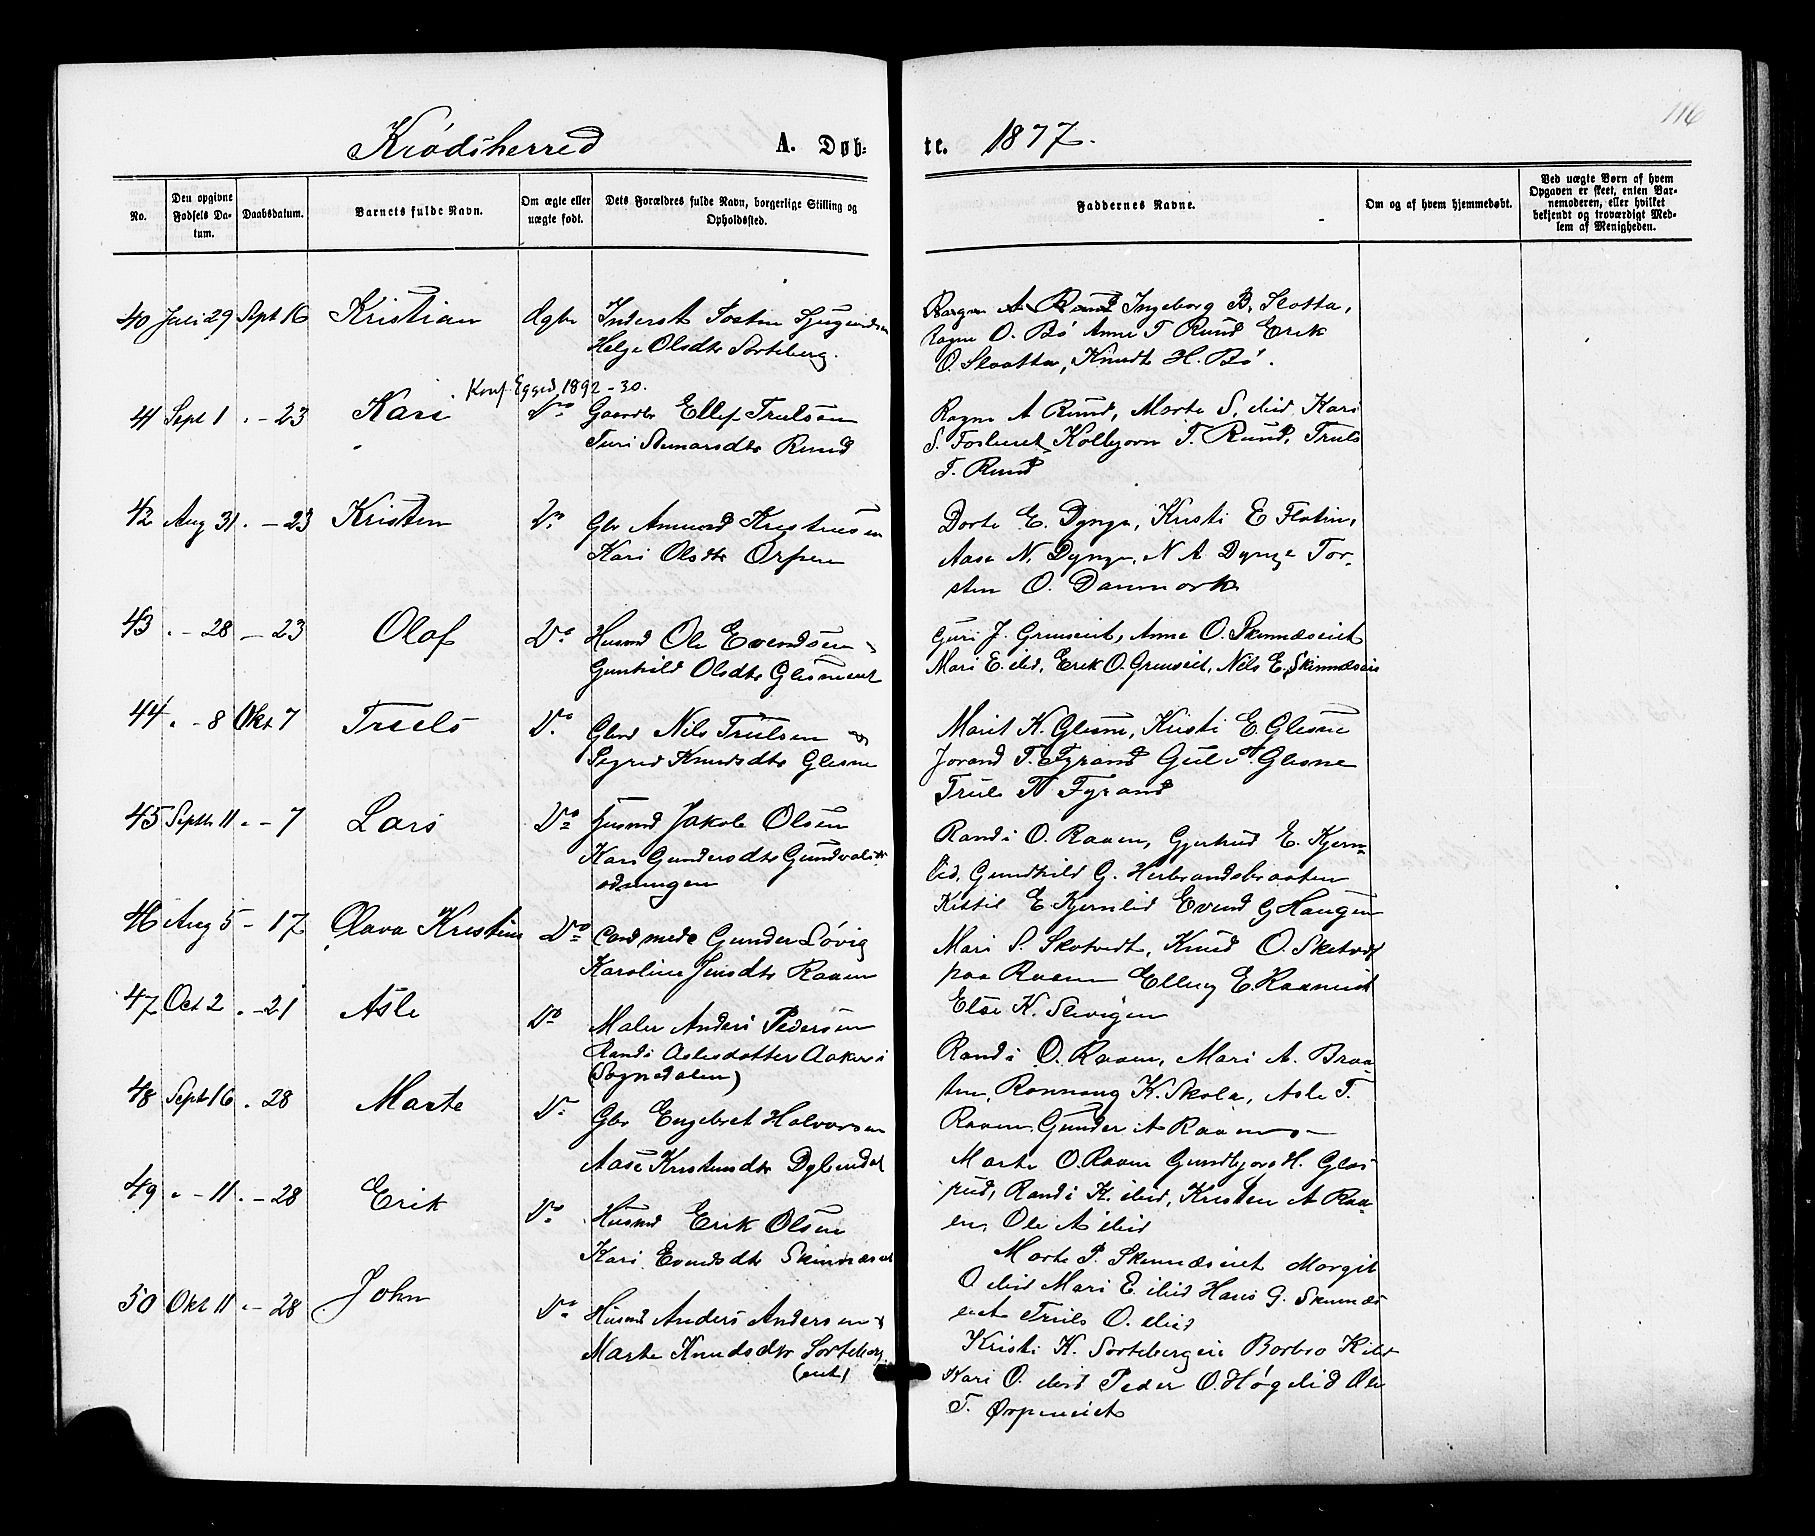 116
Krødsherred A. Døb-
te. 1877.
No.
Den opgivne Fødsels Da-
tum.
Daabsdatum.
Barnets fulde Navn.
Om ægte eller
uægte født.
Dets Forældres fulde Navn, borgerlige Stilling og
Opholdssted.
Faddernes Navne.
Om og af hvem hjemmedøbt.
Ved uægte Børn af hvem
Opgaven er skeet, enten Bar-
nemoderen, eller hvilket
bekjendt og troværdigt Med-
lem af Menigheden.
40 Juli 29 Spt 16 Kristian Ægte Inderst
Helge Olsdtr Sorteberg.
A Rund Ingeborg B. Slotta,
O. Bö Anne T Rund Erik
O. Slaatta, Knudt H. Bö.
Konf. Eggedl 1892-30.
41 Sept 1 . - 23 Kari Do Gaardbr Ellef Trulsen
Turi Rund
Ragne A Rund, Marte S. ibid, Kari
S. Kolbjørn T. Rund, Truls
T. Rund
42 Aug 31 . - 23 Kristen Do Gbr Amund
Kari Olsdtr Ørpen
Dorte E. Dynge, Kristi E Flatin,
Aase N. Dynge, N A Dynge Tor-
sten O. Danmark
43 . - 28 - 23 Olaf Do Husmd Ole Evendsen
Gunhild Olsdtr Glesneeiet
Guri J. Anne O. Skinnæseiet
Mari E. ibid, Erik O. Nils E. Skinnæseie
44 . - 8 Okt 7 Truls Do Gbrd Nils Trulsen &
Sigrid Knudsdtr Glesne
Marit K. Glesne, Kristi E. Glesne
Jorand T. Fyrand Gul Glesne
Truls Fyrand
45 Septb 11 . - 7 Lars Do Husmd Jakob Olsen
Kari Gundersdtr
Randi O. Raaen, Gjertrud E. Kjern-
lid, Gundhild G. Herbrandsbraaten
Kittil E. Kjernlid Evend G Haugen
46 Aug 5 - 17 Olava Kristine Do Gunder Løvig
Karoline Jensdtr Raaen
Mari S. Skotvedt, Knud O. Skotvedt
paa Raaen Elling E. Raaneiet
Else K. Slevigen
47 Oct 2 . - 21 Asle Do Maler Anders Pedersen
Randi Aslesdatter Aaker i
(Sognedalen)
Randi O. Raaen, Mari A. Braa-
ten, Rønnaug K. Skole, Asle T.
Raaen, Gunder A Raaen
48 Sept 16 . 28 Marte Do Gbr Engebret Halvorsen
Aase
Marte O. Raaen Gundbjørg H. Gles-
rud, Randi K. ibid, Kristen A Raa-
en, Ole A ibid
49 . - 11 . - 28 Erik Do Husmd Erik Olsen
Kari Evendsdtr Skinnæseiet
Marte P. Skinnæseiet Margit
O ibid Mari E. ibid Hans G. Skinnæs
eiet Truls O. ibid
50 Okt 11 . - 28 John Do Husmd Anders Andersen &
Marte Knudsdtr Sorteberg
(eiet)
Kristi K. Sortebergeie Barbro K ibid
Kari O. ibid Peder O. Høgelid Ole
T. Ørpeneiet